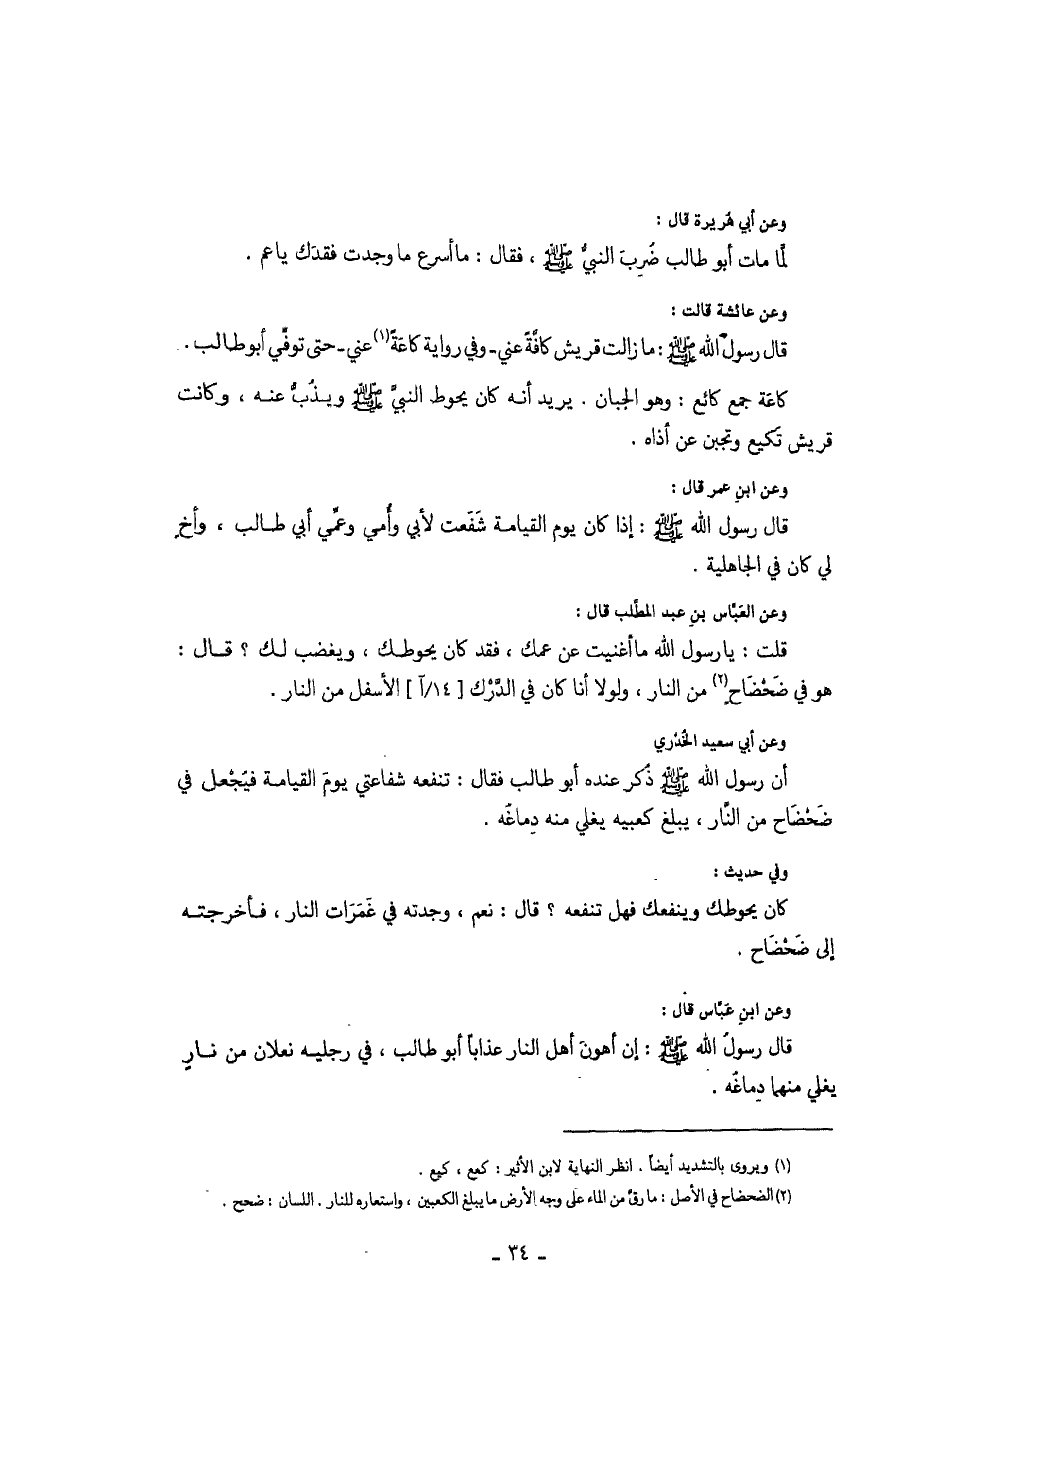 وعن أبي هُريرة قال :
لمَّا مات أبو طالب ضُرِبَ النبيُّ ﷺ ، فقال : ماأسرع ماوجدت فقدَك ياعم .
وعن عائشة قالت :
قال رسولُ الله ﷺ : مازالت قريش كافَّةً عني ـ وفي رواية كاعَةً(١) عني ـ حتى توفّي أبوطالب .
كاعَة جمع كائع : وهو الجبان . يريد أنه كان يحوط النبيَّ ﷺ ويذُبُّ عنه ، وكانت
قريش تكيع وتجبن عن أذاه .
وعن ابنِ عمر قال :
قال رسول الله ﷺ : إذا كان يوم القيامة شَفَعت لأبي وأُمي وعمِّي أبي طالب ، وأخٍ
لي كان في الجاهلية .
وعن العَبَّاس بنِ عبد المطَّلب قال :
قلت : يارسول الله ماأغنيت عن عمك ، فقد كان يحوطك ، ويغضب لك ؟ قال :
هو في ضَحْضَاحٍ(٢) من النار ، ولولا أنا كان في الدَّرْك [ ١٤/آ ] الأسفل من النار .
وعن أبي سعيد الخُدْري
أن رسول الله ﷺ ذُكر عنده أبو طالب فقال : تنفعه شفاعتي يومَ القيامة فيُجْعل في
ضَحْضَاح من النَّار ، يبلغ كعبيه يغلي منه دِماغُه .
وفي حديث :
كان يحوطك وينفعك فهل تنفعه ؟ قال : نعم ، وجدته في غَمَرَات النار ، فأخرجته
إلى ضَحْضَاح .
وعن ابنِ عَبَّاس قال :
قال رسولُ الله ﷺ : إن أهونَ أهل النار عذاباً أبو طالب ، في رجليه نعلان من نارٍ
يغلي منهما دِماغُه .
(١) ويروى بالتشديد أيضاً . انظر النهاية لابن الأثير : كعع ، كيع .
(٢) الضحضاح في الأصل : مارقَّ من الماء على وجه الأرض مايبلغ الكعبين ، واستعاره للنار . اللسان : ضحح .
ـ ٣٤ ـ